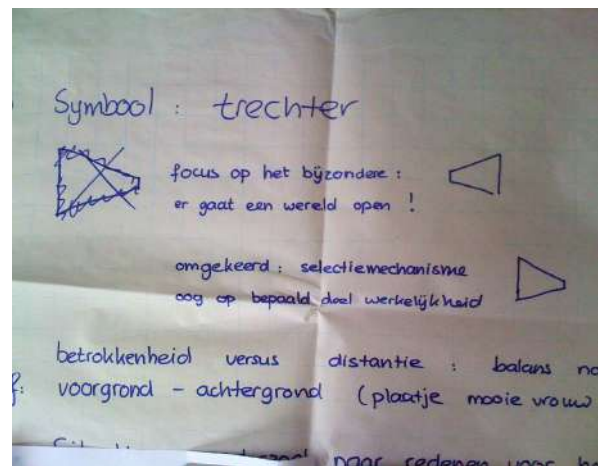 Symbool : trechter
focus op het bijzondere :
er gaat een wereld open !
omgekeerd : selectiemechanisme
oog op bepaald deel werkelijkheid
betrokkenheid versus distantie : balans no
f: voorgrond - achtergrond (plaatje mooie vrouw
naar redenen voor